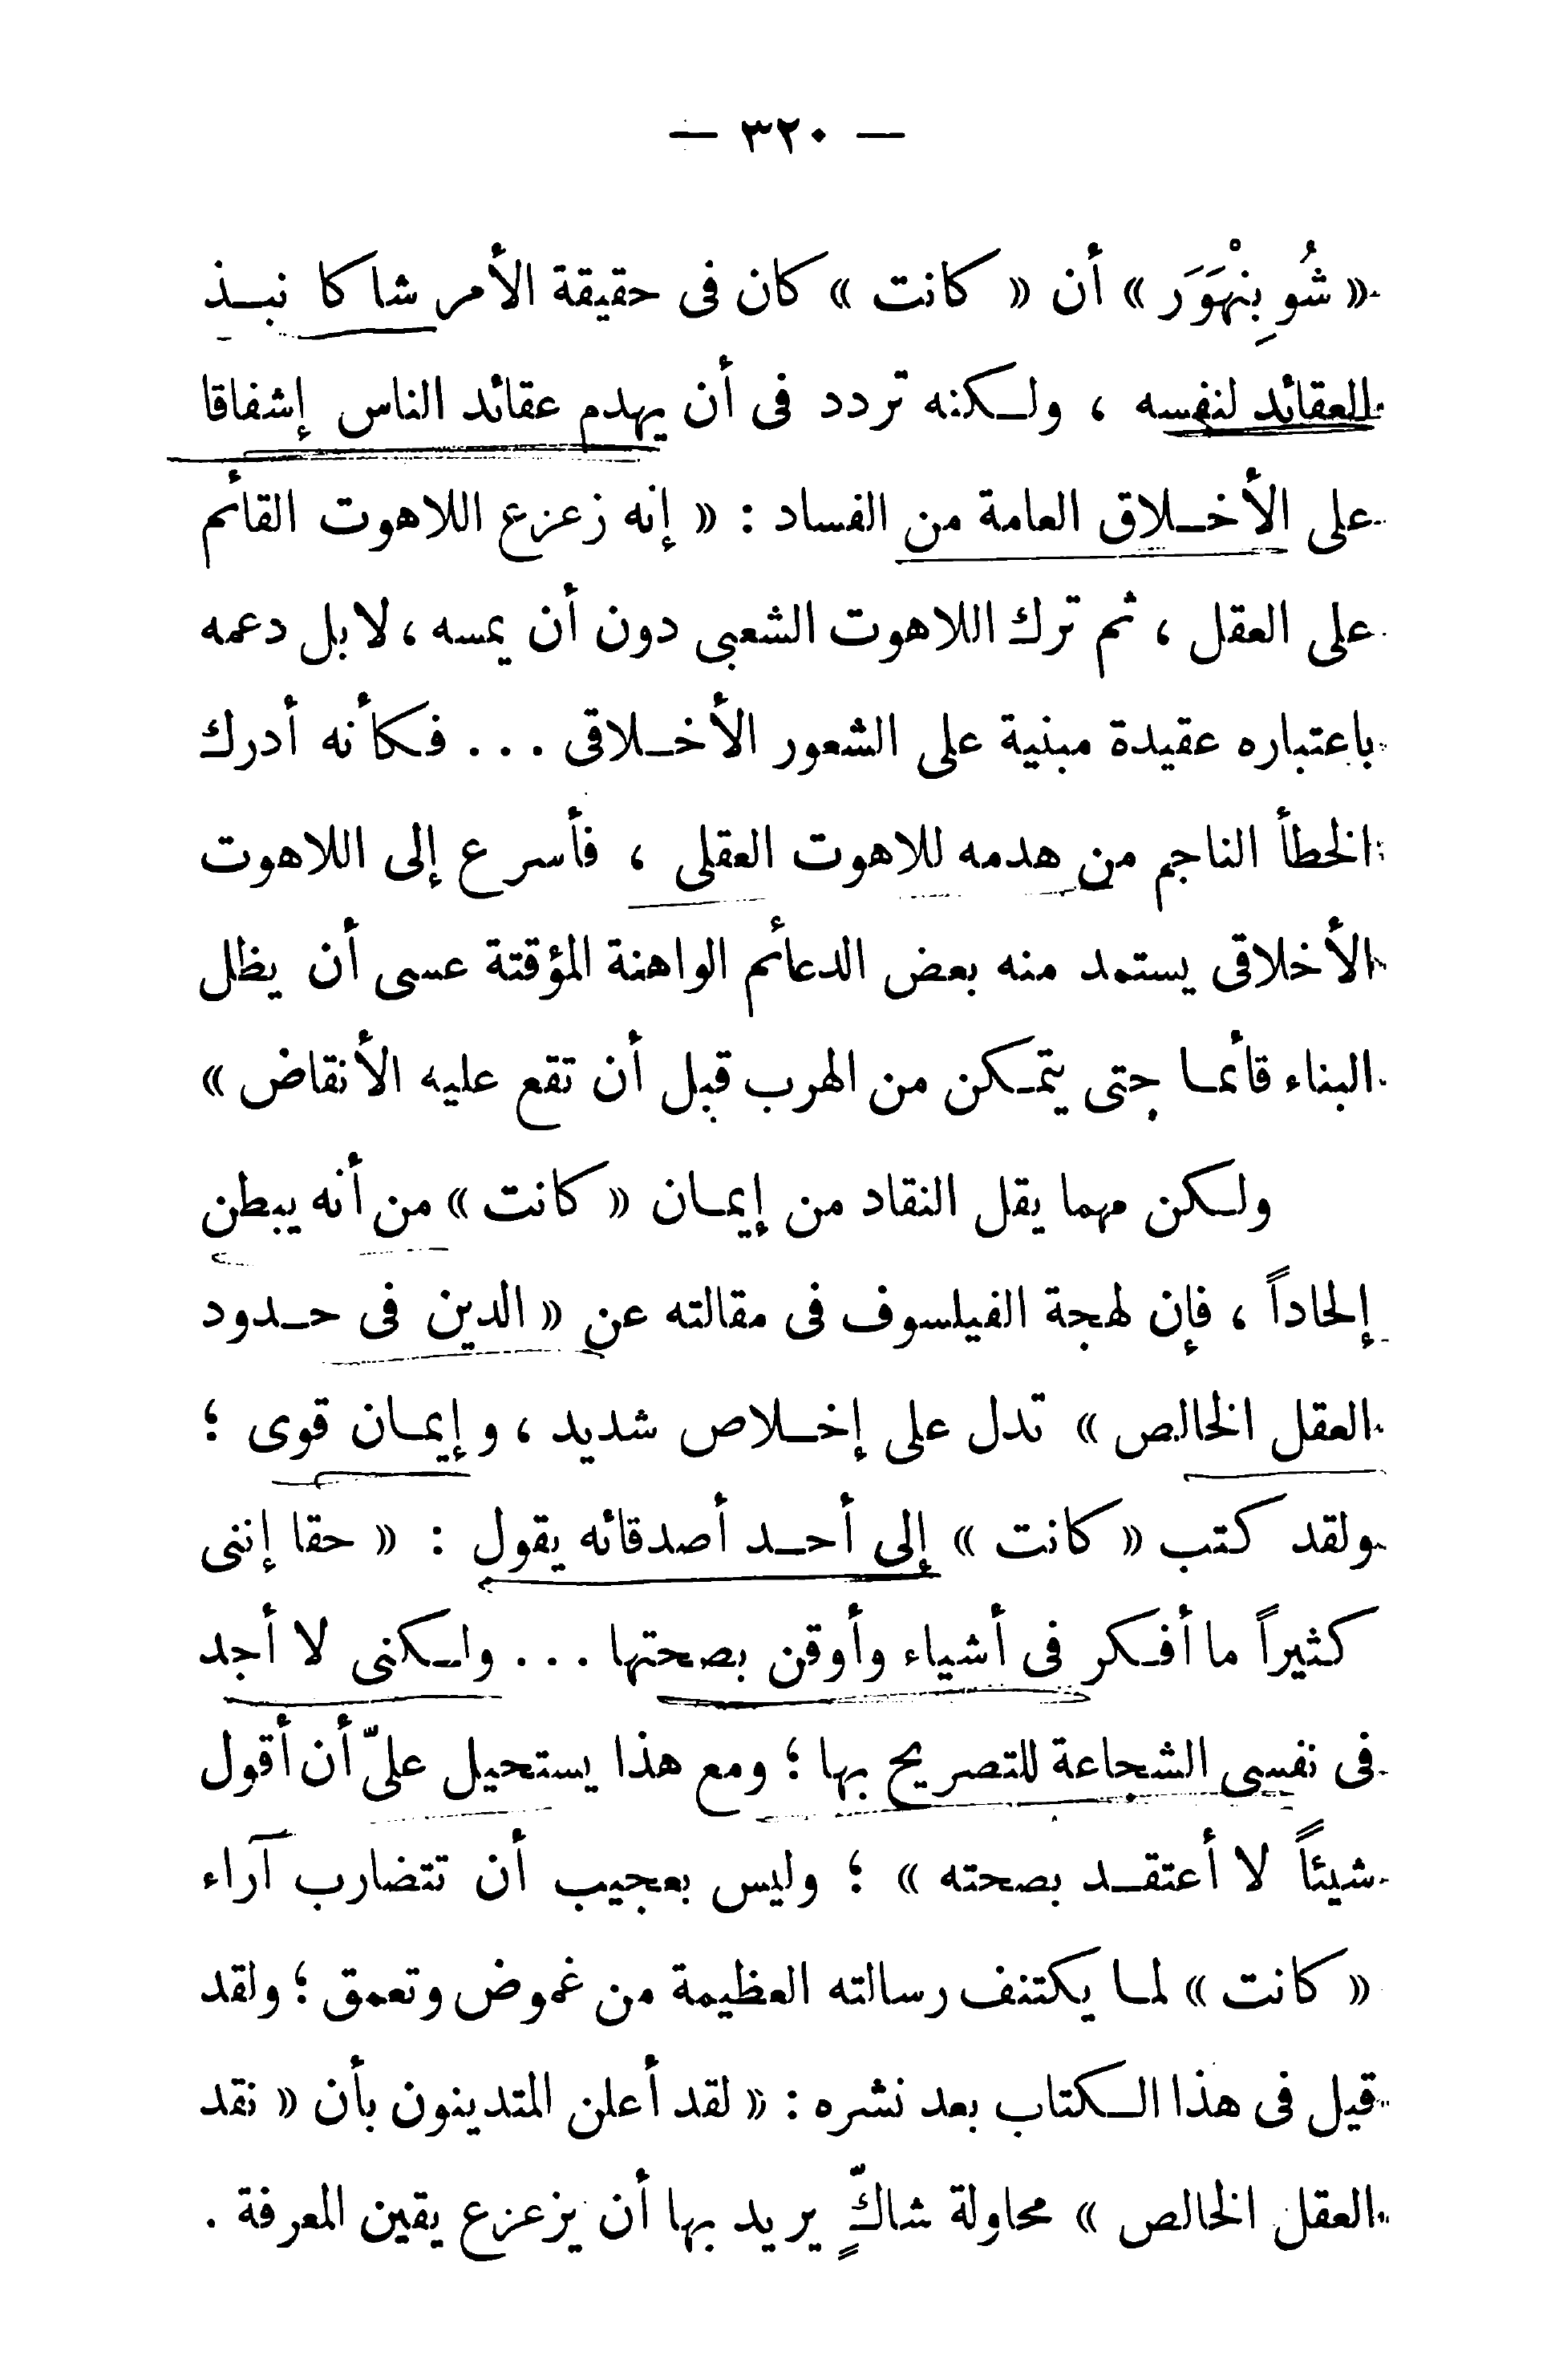 — ٣٢٠ —
« شُوبِنْهَوَر » أن « كانت » كان فى حقيقة الأمر شاكا نبذ
العقائد لنفسه ، ولكنه تردد فى أن يهدم عقائد الناس إشفاقا
على الأخلاق العامة من الفساد : « إنه زعزع اللاهوت القائم
على العقل ، ثم ترك اللاهوت الشعبى دون أن يمسه ، لا بل دعمه
باعتباره عقيدة مبنية على الشعور الأخلاقى ... فكأنه أدرك
الخطأ الناجم من هدمه للاهوت العقلى ، فأسرع إلى اللاهوت
الأخلاقى يستمد منه بعض الدعائم الواهنة المؤقتة عسى أن يظل
البناء قائما حتى يتمكن من الهرب قبل أن تقع عليه الأنقاض »
ولكن مهما يقل النقاد من إيمان « كانت » من أنه يبطن
إلحاداً ، فإن لهجة الفيلسوف فى مقالته عن « الدين فى حدود
العقل الخالص » تدل على إخلاص شديد ، وإيمان قوى ؛
ولقد كتب « كانت » إلى أحد أصدقائه يقول : « حقا إننى
كثيراً ما أفكر فى أشياء وأوقن بصحتها ... ولكنى لا أجد
فى نفسى الشجاعة للتصريح بها ؛ ومع هذا يستحيل علىّ أن أقول
شيئاً لا أعتقد بصحته » ؛ وليس بعجيب أن تتضارب آراء
« كانت » لما يكتنف رسالته العظيمة من غموض وتعمق ؛ ولقد
قيل فى هذا الكتاب بعد نشره : « لقد أعلن المتدينون بأن « نقد
العقل الخالص » محاولة شاكٍّ يريد بها أن يزعزع يقين المعرفة .